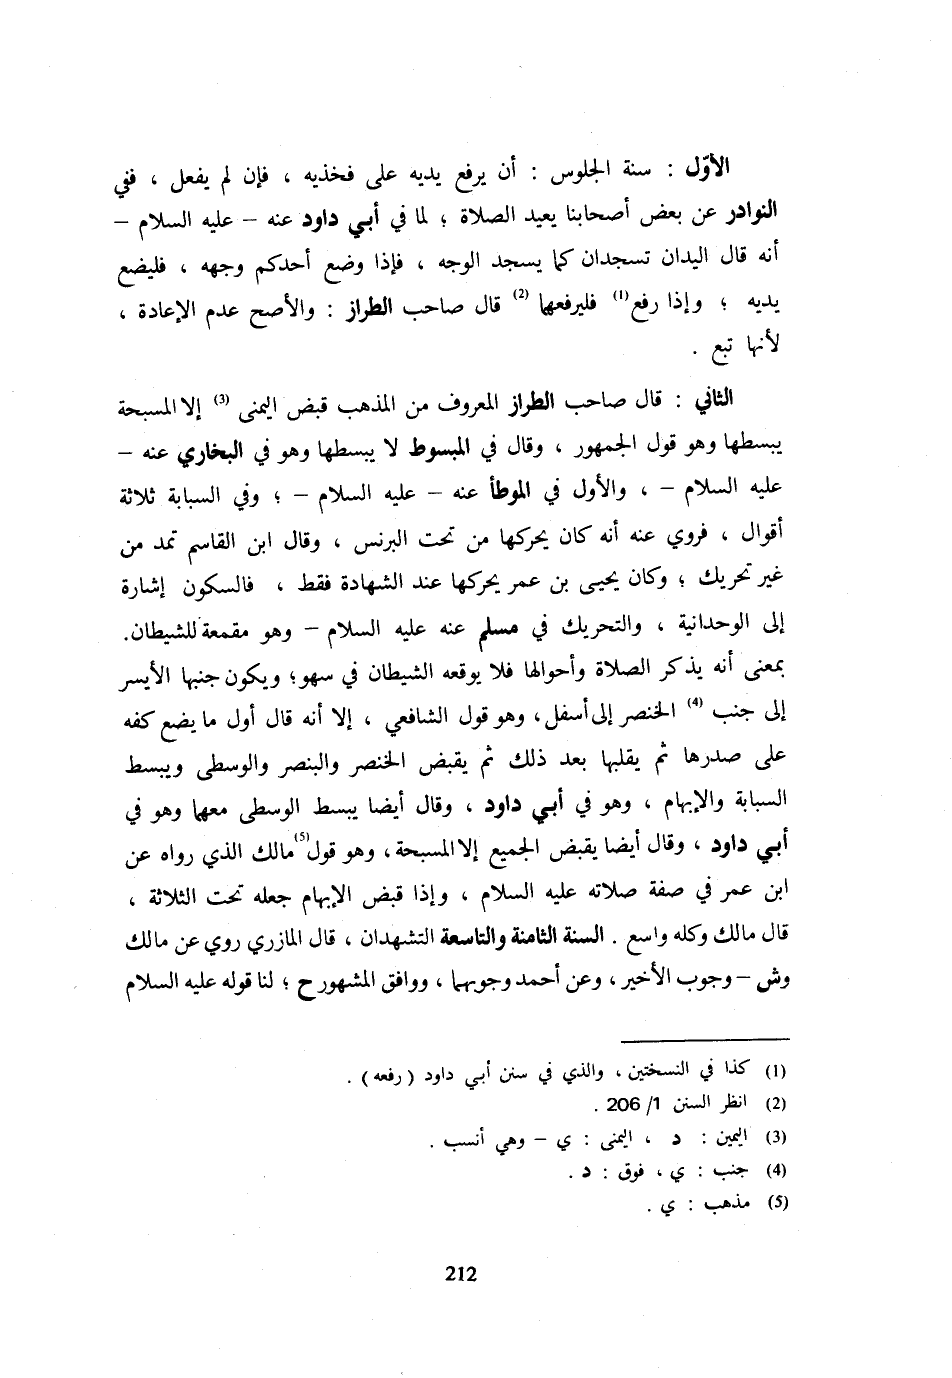 الأوّل : سنة الجلوس : أن يرفع يديه على فخذيه ، فإن لم يفعل ، ففي
النوادر عن بعض أصحابنا يعيد الصلاة ؛ لما في أبي داود عنه – عليه السلام –
أنه قال اليدان تسجدان كما يسجد الوجه ، فإذا وضع أحدكم وجهه ، فليضع
يديه ؛ وإذا رفع (1) فليرفعها (2) قال صاحب الطراز : والأصح عدم الإعادة ،
لأنها تبع .
الثاني : قال صاحب الطراز المعروف من المذهب قبض اليمنى (3) إلا المسبحة
يبسطها وهو قول الجمهور ، وقال في المبسوط لا يبسطها وهو في البخاري عنه –
عليه السلام – ، والأول في الموطأ عنه – عليه السلام – ؛ وفي السبابة ثلاثة
أقوال ، فروي عنه أنه كان يحركها من تحت البرنس ، وقال ابن القاسم تمد من
غير تحريك ؛ وكان يحيى بن عمر يحركها عند الشهادة فقط ، فالسكون إشارة
إلى الوحدانية ، والتحريك في مسلم عنه عليه السلام – وهو مقمعة للشيطان.
بمعنى أنه يذكر الصلاة وأحوالها فلا يوقعه الشيطان في سهو؛ ويكون جنبها الأيسر
إلى جنب (4) الخنصر إلى أسفل، وهو قول الشافعي ، إلا أنه قال أول ما يضع كفه
على صدرها ثم يقلبها بعد ذلك ثم يقبض الخنصر والبنصر والوسطى ويبسط
السبابة والإبهام ، وهو في أبي داود ، وقال أيضا يبسط الوسطى معها وهو في
أبي داود ، وقال أيضا يقبض الجميع إلا المسبحة، وهو قول (5) مالك الذي رواه عن
ابن عمر في صفة صلاته عليه السلام ، وإذا قبض الإبهام جعله تحت الثلاثة ،
قال مالك وكله واسع . السنة الثامنة والتاسعة التشهدان ، قال المازري روي عن مالك
وش – وجوب الأخير، وعن أحمد وجوبهما ، ووافق المشهور ح ؛ لنا قوله عليه السلام
(1) كذا في النسختين ، والذي في سنن أبي داود ( رفعه ) .
(2) انظر السنن 1/ 206 .
(3) اليمين : د ، اليمنى : ي – وهي أنسب .
(4) جنب : ي ، فوق : د .
(5) مذهب : ي .
212